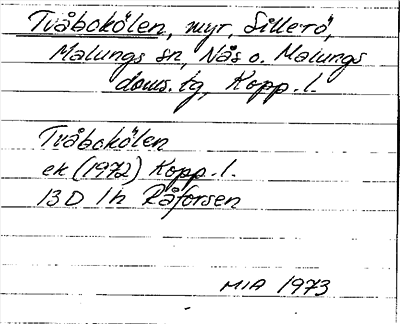 Tvåbokölen, myr, Sillerö,
Malungs sn, Nås o. Malungs
doms. tg, Kopp. l.
Tvåbokölen
ek (1972) Kopp. l.
13D 1h Råforsen
MIA 1973